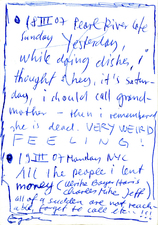 18 III 07 Pearl River Cafe
Sunday Yesterday,
while doing dishes, I
thought "hey, it's satur-
day, i should call grand-
mother - then i remembered
she is dead. VERY WEIRD
FEELING!
19 III 07 Monday NYC
All the people i lent
money (Ulrike Bayer Hans
Charles Mike Jeff)
all of a sudden are not reach-
able, forget to call etc...!!!